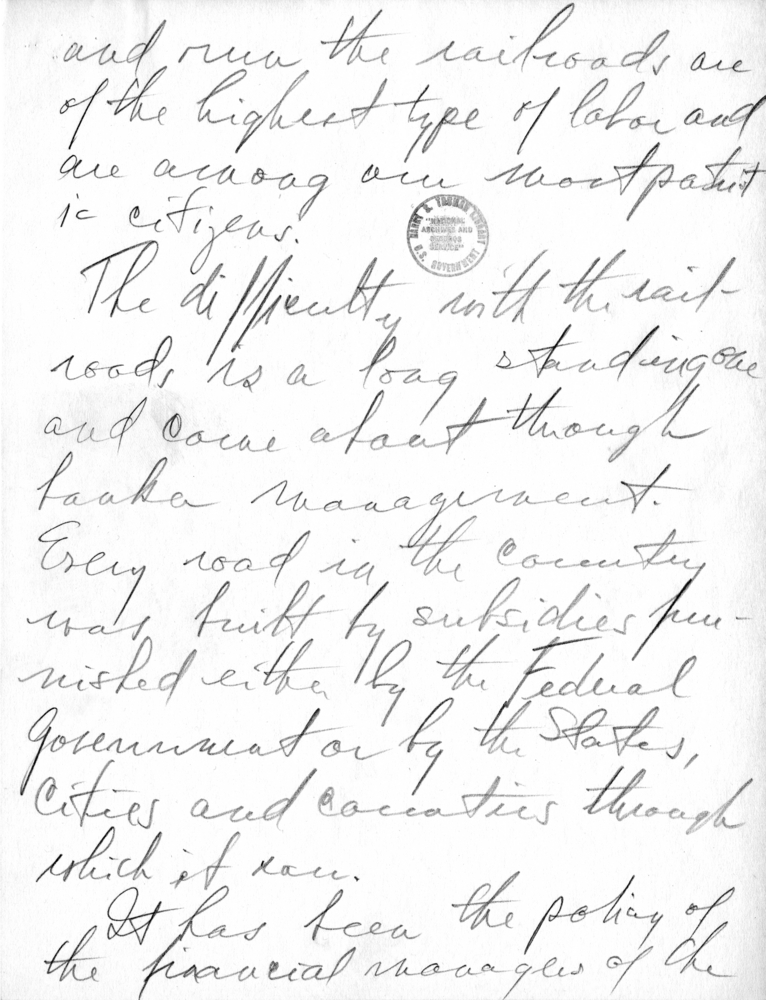 and run the railroads are
of the highest type of labor and
are among our most patriot
ic citizens.
HARRY S. TRUMAN LIBRARY
"NATIONAL
ARCHIVES AND
RECORDS
SERVICE"
U.S. GOVERNMENT
The difficulty with the rail-
roads is a long standing one
and come about through
banker management.
Every road in the country
was built by subsidies fur-
nished either by the Federal
Government or by the States,
Cities and counties through
which it ran.
It has been the policy of
the financial managers of the